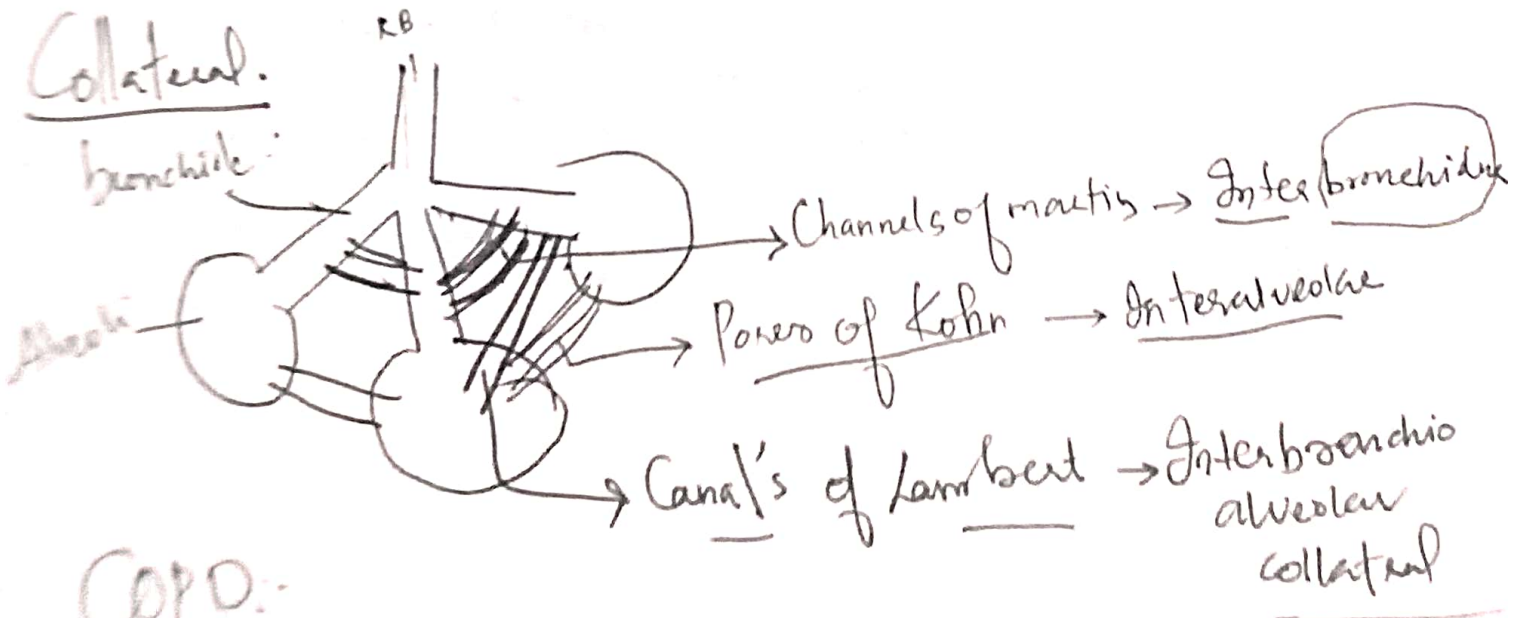 RB
Collateral.
bronchiole:
Channels of martin → Inter bronchiolar
Alveoli
Pores of Kohn → Interalveolar
Canal's of Lambert → Interbronchio
alveolar
collateral
COPD:-